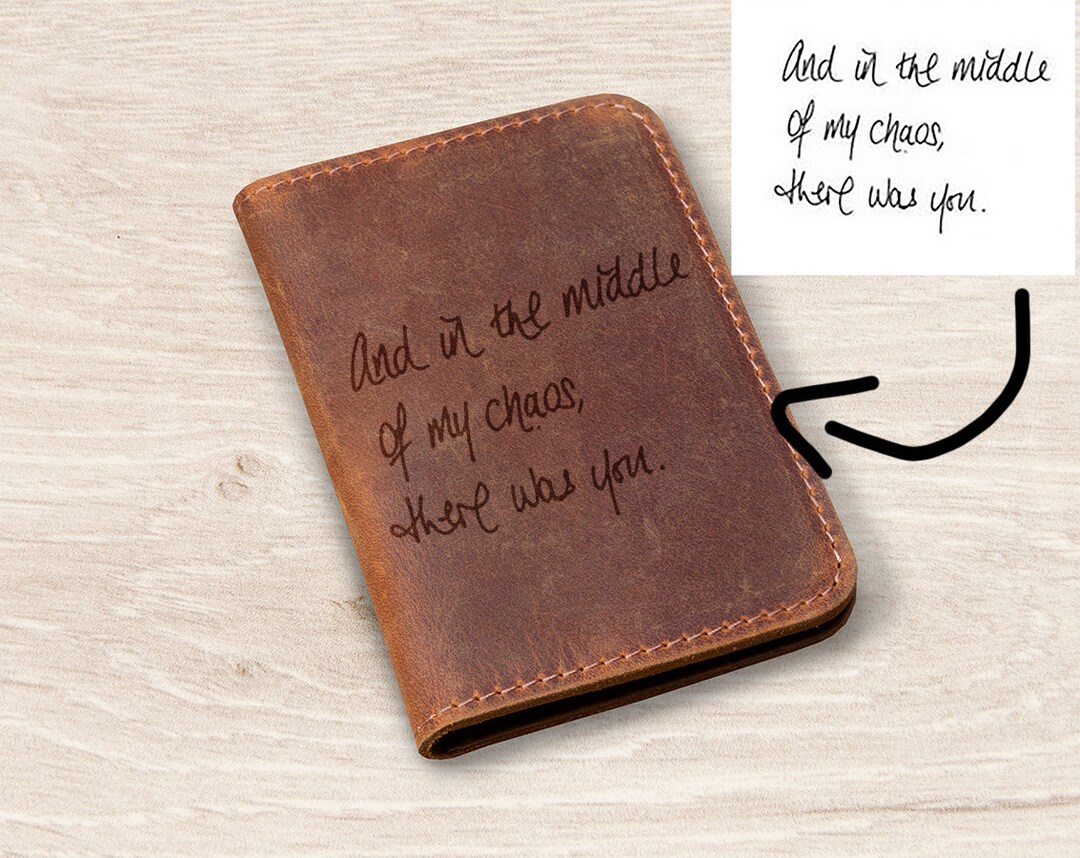 And in the middle
of my chaos,
there was you.
And in the middle
of my chaos,
there was you.